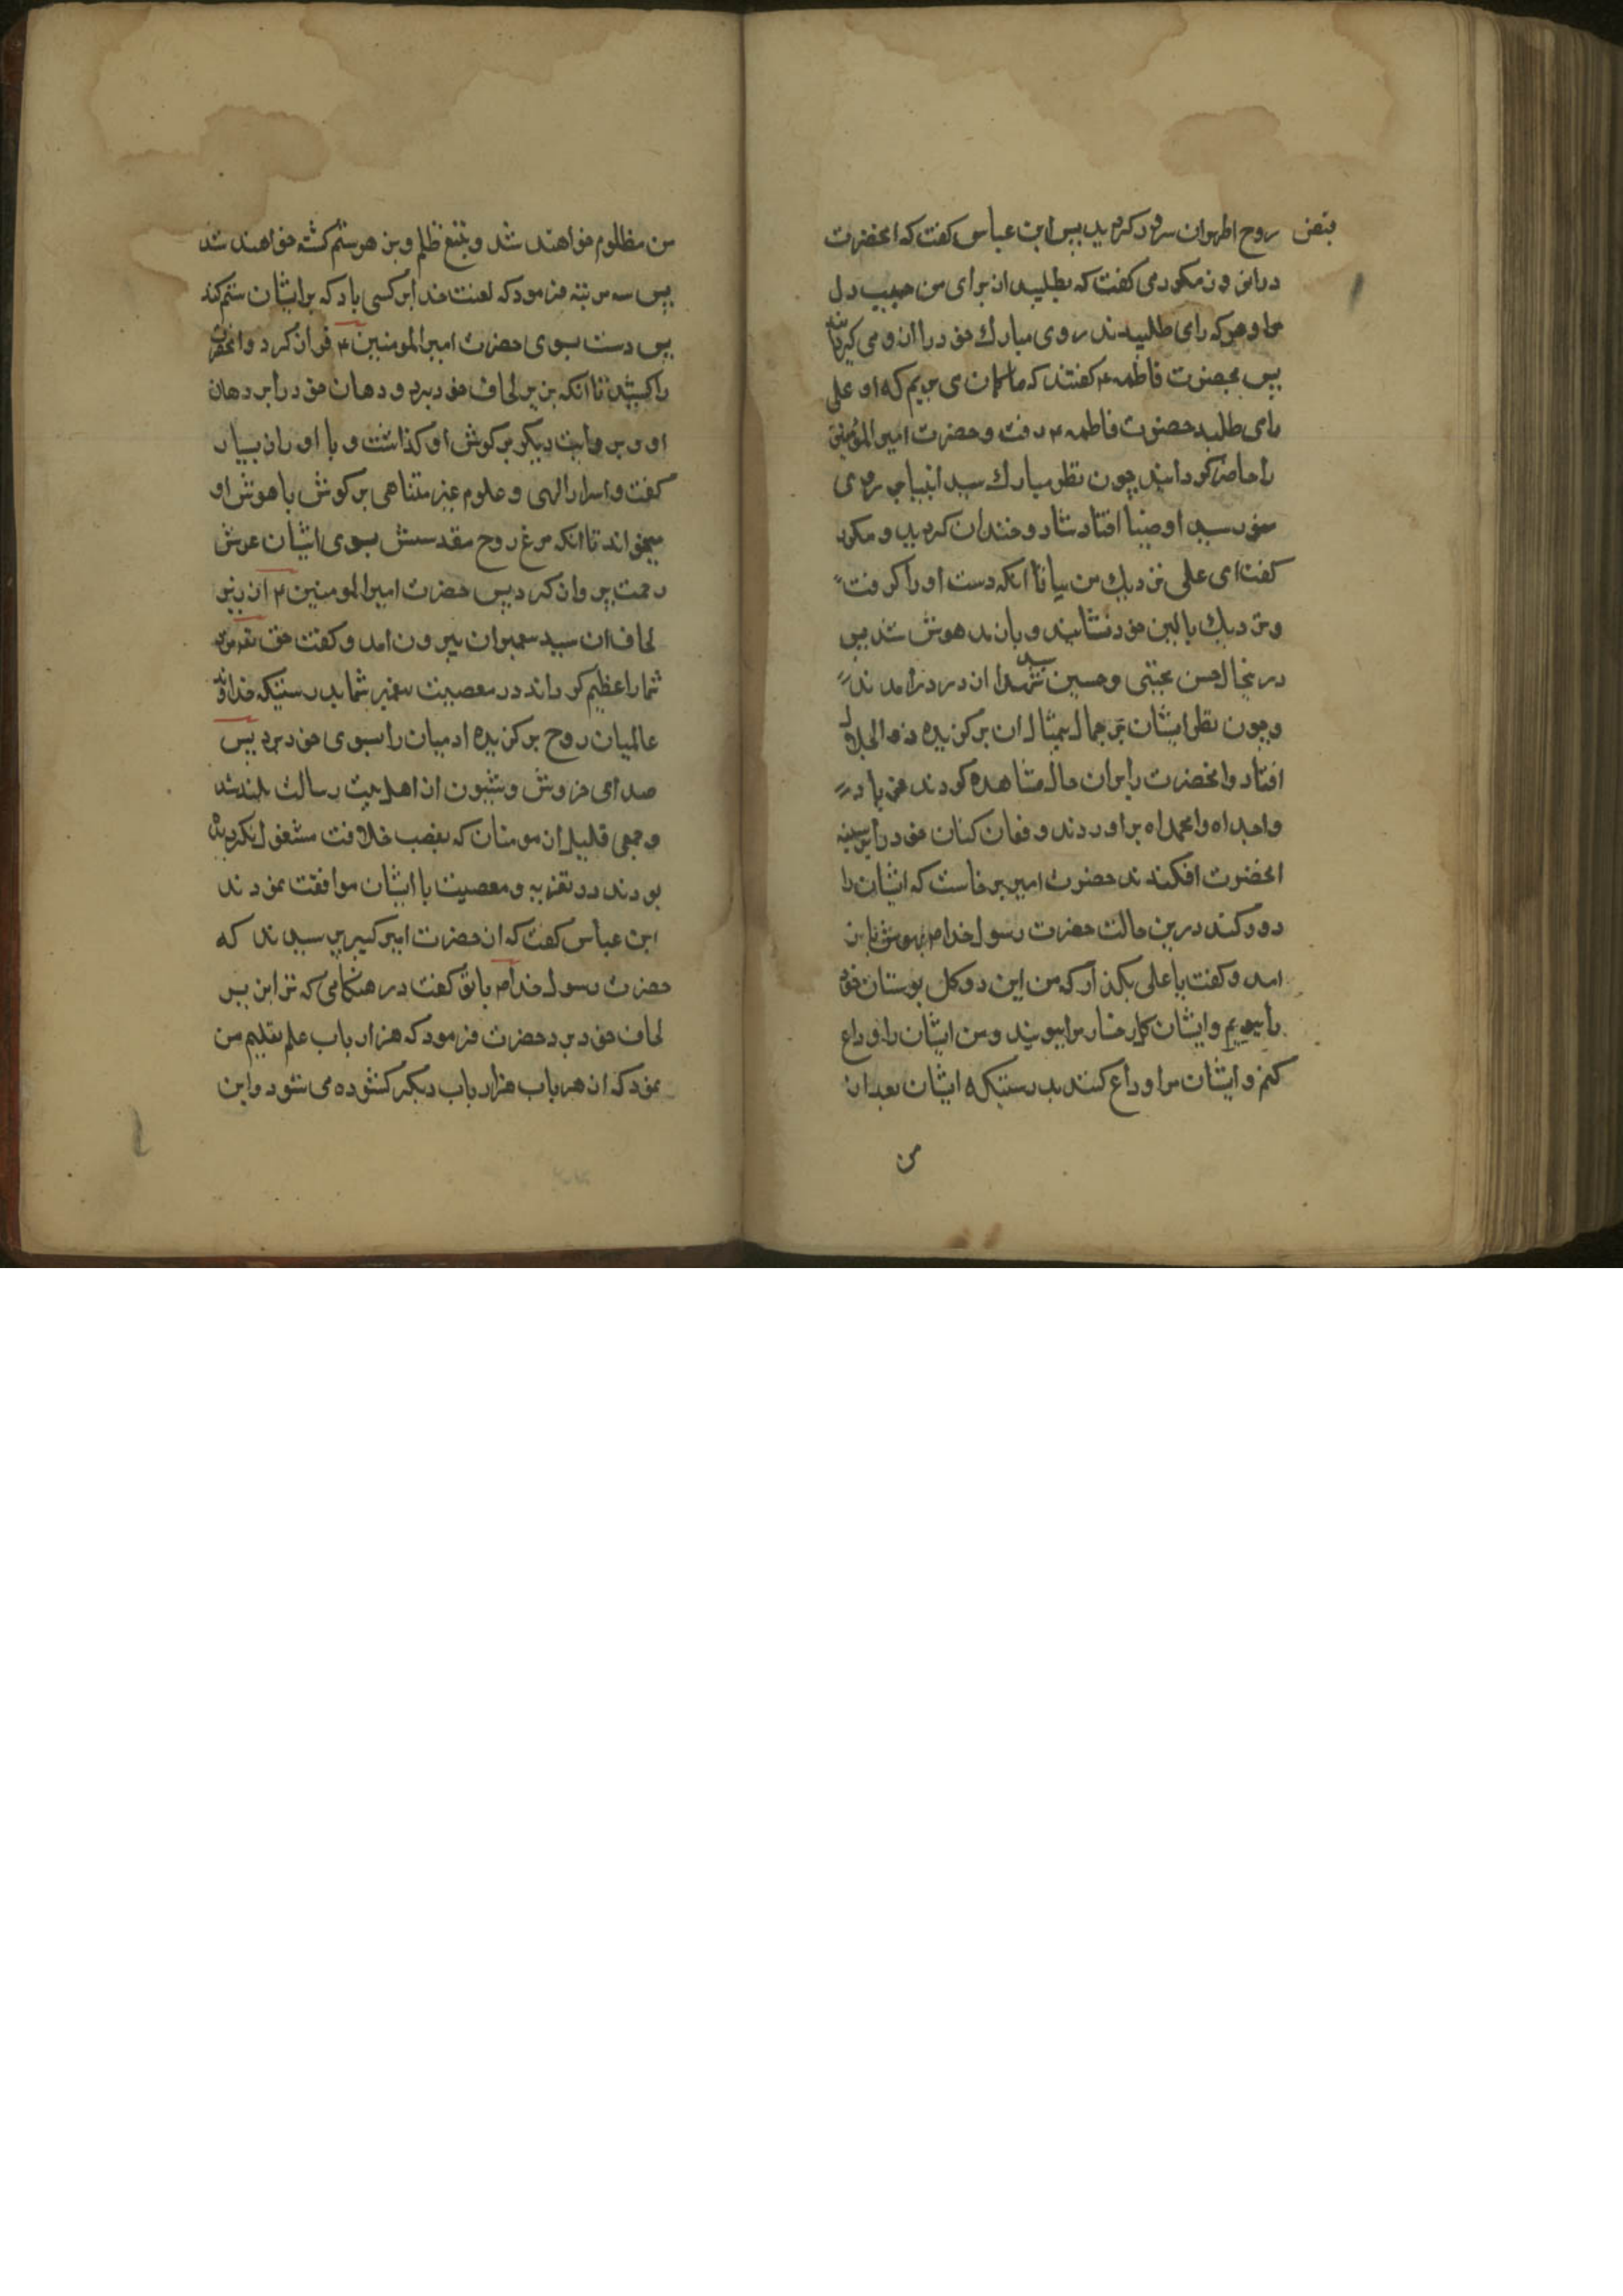 قبض روح اطهر ان سرور کردید پس ابن عباس کفت که انحضرت
دران روز مکرر می کفت که بطلبید از برای من حبیب دل
مرا و هر که را می طلبیدند روی مبارک خود را از و می کردانید
پس بحضرت فاطمه ۴ کفتند که ما کمان می بریم که او علی
را می طلبد حضرت فاطمه ۴ رفت و حضرت امیر المؤمنین
را حاضر کردانید چون نظر مبارک سید انبیا بر روی
منور سید اوصیا افتاد شاد و خندان کردید و مکرر
کفت ای علی نزدیک من بیا تا انکه دست او را کرفت
و نزدیک بالین خود نشانید و باز مدهوش شد پس
درینحال حسن مجتبی و حسین سید شهدا از در درامدند
و چون نظر ایشان بر جمال بیمثال ان برکزیده ذو الجلال
افتاد و انحضرت را بران حال مشاهده کردند فریاد
واجداه وامحمداه براوردند و فغان کنان خود را بر سینه
انحضرت افکندند حضرت امیر برخاست که ایشان را
دور کند درین حالت حضرت رسول خدا م بهوش باز
امد و کفت یا علی بکذار که من این دو کل بوستان خود
را ببویم و ایشان کل رخسار مرا ببویند و من ایشان را وداع
کنم و ایشان مرا وداع کنند بدرستیکه ایشان بعد از
من
من مظلوم خواهند شد و بتیغ ظلم و زهر ستم کشته خواهند شد
پس سه مرتبه فرمود که لعنت خدا بر کسی باد که بر ایشان ستم کند
پس دست بسوی حضرت امیر المومنین ۴ فراز کرد و انحضرت
را کشید تا انکه بزیر لحاف خود برد و دهان خود را بر دهان
او و بروایت دیکر بر کوش او کذاشت و با او راز بسیار
کفت و اسرار الهی و علوم غیر متناهی بر کوش با هوش او
میخواند تا انکه مرغ روح مقدسش بسوی اشیان عرش
رحمت پرواز کرد پس حضرت امیر المومنین ۴ از زیر
لحاف ان سید پیغمبران بیرون امد و کفت حق تعم مزد
شما را عظیم کرداند در مصیبت پیغمبر شما بدرستیکه خداوند
عالمیان روح برکزیده ادمیان را بسوی خود برد پس
صدای خروش و شیون از اهل بیت رسالت بلند شد
و جمعی قلیل از مومنان که بغصب خلافت مشغول نکردیده
بودند در تعزیه و مصیبت با ایشان موافقت نمودند
ابن عباس کفت که از حضرت امیر کبیر پرسیدند که
حضرت رسول خدا م با تو کفت در هنکامی که ترا بزیر
لحاف خود برد حضرت فرمود که هزار باب علم تعلیم من
نمود که از هر باب هزار باب دیکر کشوده می شود و این